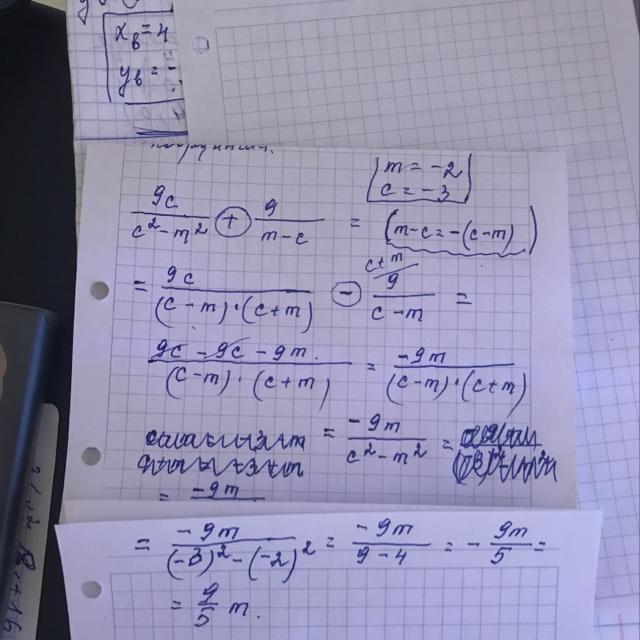 x_в = 4
y_в = -
m = -2
c = -3
9c/(c² - m²) + 9/(m - c) = (m - c = -(c - m))
= 9c/((c - m) · (c + m)) - 9/(c - m) = c + m
(9c - 9c - 9m)/((c - m) · (c + m)) = -9m/((c - m) · (c + m))
= -9m/(c² - m²) =
= -9m
= -9m/((-3)² - (-2)²) = -9m/(9 - 4) = - 9m/5 =
= 9/5 m.